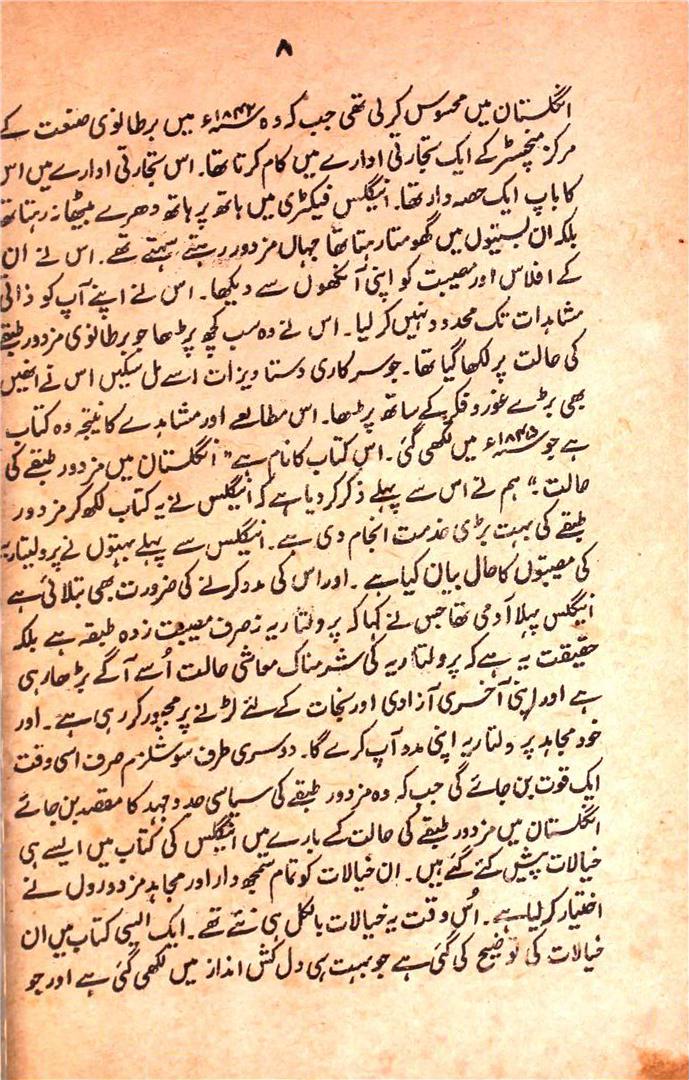 ۸
انگلستان میں محسوس کر لی تھی جب کہ وہ ۱۸۴۲ء میں برطانوی صنعت کے
مرکز منچسٹر کے ایک تجارتی ادارے میں کام کرتا تھا۔ اس تجارتی ادارے میں اس
کا باپ ایک حصہ دار تھا۔ انیگلس فیکٹری میں ہاتھ پر ہاتھ دھرے بیٹھا نہ رہتا تھا
بلکہ ان بستیوں میں گھومتا رہتا تھا جہاں مزدور رہتے سہتے تھے۔ اس نے ان
کے افلاس اور مصیبت کو اپنی آنکھوں سے دیکھا۔ اس نے اپنے آپ کو ذاتی
مشاہدات تک محدود نہیں کر لیا۔ اس نے وہ سب کچھ پڑھا جو برطانوی مزدور طبقے
کی حالت پر لکھا گیا تھا۔ جو سرکاری دستاویزات اسے مل سکیں اس نے انھیں
بھی بڑے غور و فکر کے ساتھ پڑھا۔ اس مطالعے اور مشاہدے کا نتیجہ وہ کتاب
ہے جو ۱۸۴۵ء میں لکھی گئی۔ اس کتاب کا نام ہے "انگلستان میں مزدور طبقے کی
حالت"۔ ہم نے اس سے پہلے ذکر کر دیا ہے کہ انیگلس نے یہ کتاب لکھ کر مزدور
طبقے کی بہت بڑی خدمت انجام دی ہے۔ انیگلس سے پہلے بہتوں نے پرولیتاریہ
کی مصیبتوں کا حال بیان کیا ہے۔ اور اس کی مدد کرنے کی ضرورت بھی بتلائی ہے
انیگلس پہلا آدمی تھا جس نے کہا کہ پرولتاریہ نہ صرف مصیبت زدہ طبقہ ہے بلکہ
حقیقت یہ ہے کہ پرولتاریہ کی شرمناک معاشی حالت اُسے آگے بڑھا رہی
ہے اور اپنی آخری آزادی اور نجات کے لئے لڑنے پر مجبور کر رہی ہے۔ اور
خود مجاہد پرولتاریہ اپنی مدد آپ کرے گا۔ دوسری طرف سوشلزم صرف اسی وقت
ایک قوت بن جائے گی جب کہ وہ مزدور طبقے کی سیاسی جدوجہد کا مقصد بن جائے
انگلستان میں مزدور طبقے کی حالت کے بارے میں انیگلس کی کتاب میں ایسے ہی
خیالات پیش کئے گئے ہیں۔ ان خیالات کو تمام سمجھ دار اور مجاہد مزدوروں نے
اختیار کر لیا ہے۔ اُس وقت یہ خیالات بالکل ہی نئے تھے۔ ایک ایسی کتاب میں ان
خیالات کی توضیح کی گئی ہے جو بہت ہی دل کش انداز میں لکھی گئی ہے اور جو